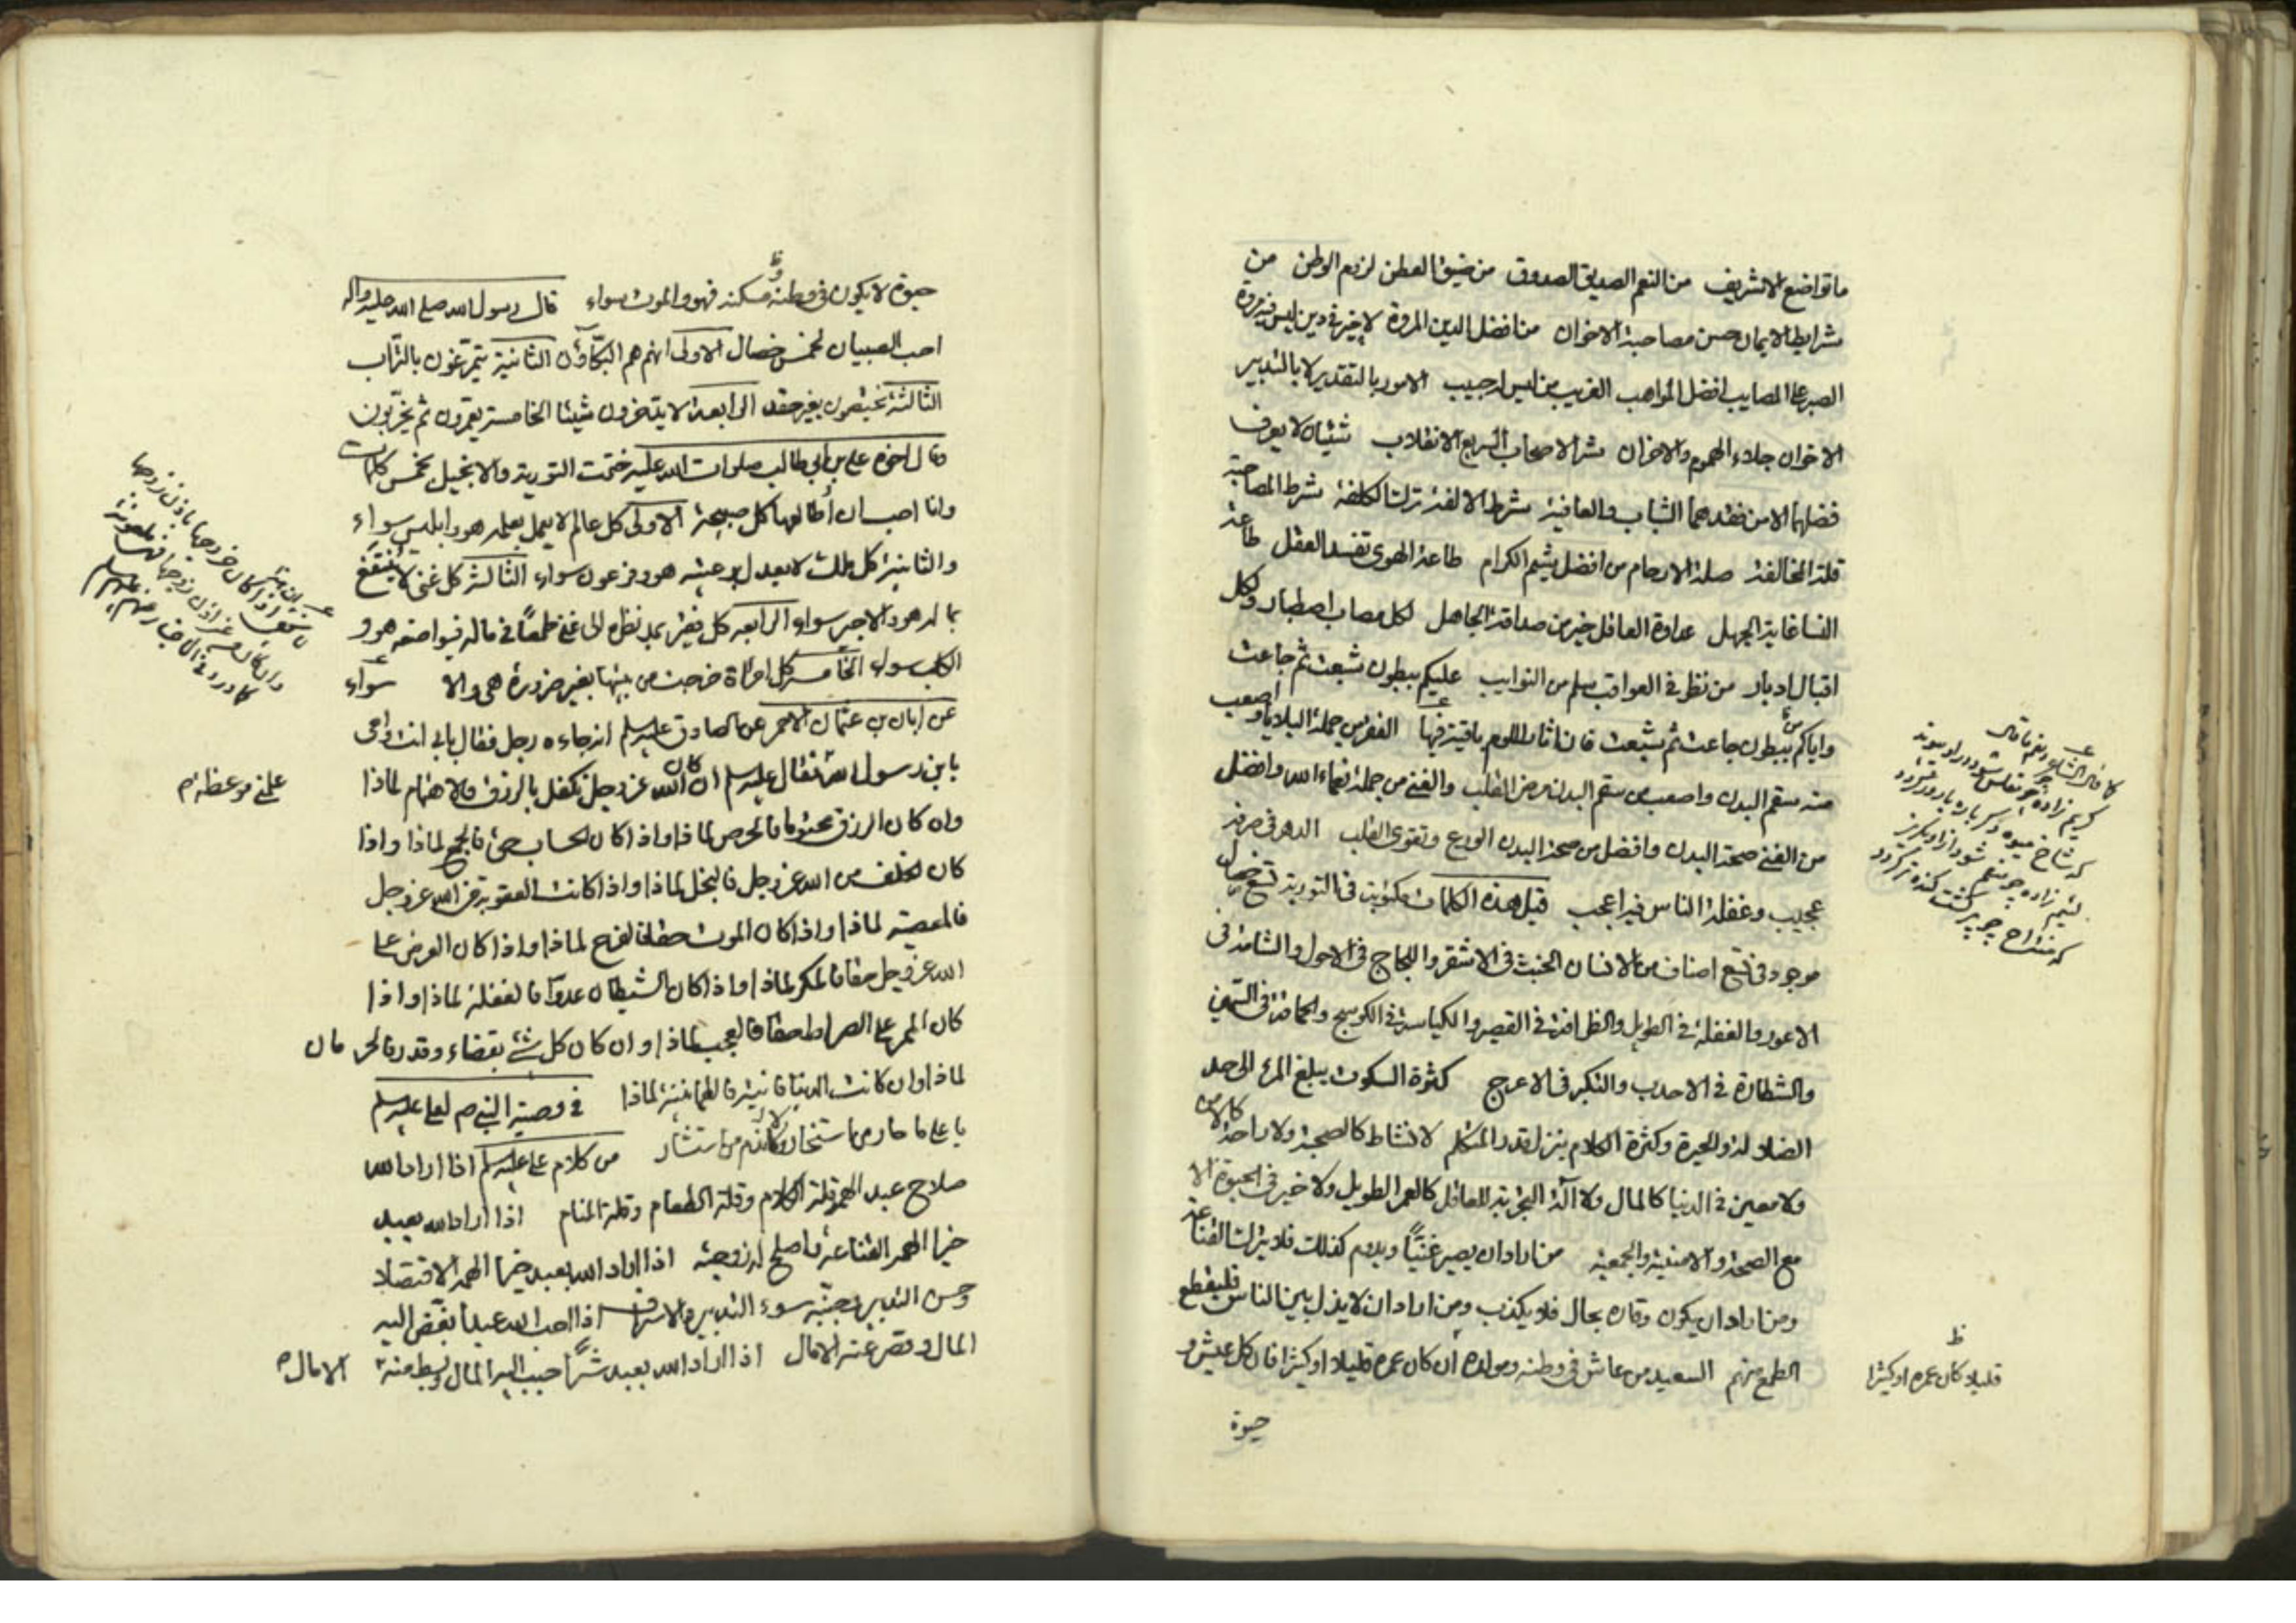 ما تواضع الا شريف من النعم الصديق الصدوق من ضيق العطن لزوم الوطن من
شرايط الايمان حسن مصاحبة الاخوان من افضل الدين المروة لا خير في دين ليس فيه مروة
الصبر على المصايب افضل المواهب الغريب من ليس له حبيب الامور بالتقدير لا بالتدبير
الاخوان جلاء الهموم والاحزان شر الاصحاب السريع الانقلاب شيئان لا يعرف
فضلهما الا من فقدهما الشباب والعافية شرط الالفة ترك الكلفة شرط المصاحبة
قلة المخالفة صلة الارحام من افضل شيم الكرام طاعة الهوى تفسد العقل طاعة
النسا غاية الجهل عداوة العاقل خير من صداقة الجاهل لكل مصاب اصطبار ولكل
اقبال ادبار من نظر في العواقب سلم من النوايب عليكم ببطون شبعت ثم جاعت
واياكم ببطون جاعت ثم شبعت فان اثار اللوم باقية فيها الفقر من جملة البلايا واصعب
منه سقم البدن واصعب من سقم البدن مرض القلب والغنى من جملة نعماء الله وافضل
من الغنى صحة البدن وافضل من صحة البدن الورع وتقوى القلب الدهر في صرفه
عجيب وغفلة الناس فيه اعجب قيل هذه الكلمات مكتوبة في التورية تسع خصال
موجود في تسع اصناف من الانسان الخبث في الاشقر واللجاج في الاحول والشامة في
الاعور والغفلة في الطويل والظرافة في القصير والكياسة في الكوسج والحماقة في السمين
والشطارة في الاحدب والتكبر في الاعرج كثرة السكوت يبلغ المرء الى حد
الضلالة والحيرة وكثرة الكلام ينزل قدر المتكلم لا نشاط كالصحة ولا راحة كالامن
ولا معين في الدنيا كالمال ولا آلة التجربة للعاقل كالعمر الطويل ولا خير في الحيوة الا
مع الصحة والامنية والجمعية من اراد ان يصير غنيًّا ويدوم كذلك فلا يترك القناعة
ومن اراد ان يكون وقاره بحال فلا يكذب ومن اراد ان لا يذل بين الناس فليقطع
الطمع منهم السعيد من عاش في وطنه ومولده ان كان عمره قليلا او كثيرا فان كل عيش و
حيوة
كريم زاده چو مفلس شود درو پيوند
كه شاخ ميوه دگر باره بارور گردد
لئيم زاده چو منعم شود ازو بگريز
كه مستراح چو پر گشت گنده تر گردد
ظ
قليلا كان عمره او كثيرا
حيوة لا يكون في وطنه ومسكنه فهو والموت سواء قال رسول الله صلى الله عليه واله
احب الصبيان لخمس خصال الاولى انهم هم البكاؤن الثانية يتمرّغون بالتراب
الثالثة يختصمون بغير حقد الرابعة لا يدّخرون شيئا الخامسة يعمرون ثم يخرّبون
وقال اخوه علي بن ابي طالب صلوات الله عليه ختمت التورية والانجيل بخمس كلمات
وانا احب ان أطالعها كل صبيحة الاولى كل عالم لا يعمل بعلمه هو وابليس سواء
والثانية كل ملك لا يعدل برعيته هو وفرعون سواء الثالثة كل غني لا ينتفع
بماله هو والاجير سواء الرابعة كل فقير يمد نظره الى غني طمعًا في ماله فيواضعه هو و
الكلب سواء الخامسة كل امرأة خرجت من بيتها بغير ضرورة هي والا سوآء
عن ابان بن عثمان الاحمر عن الصادق عليه السلم انه جاءه رجل فقال بابي انت وامي
يابن رسول الله فقال عليه السلم ان كان الله عز وجل تكفل بالرزق فالاهتمام لماذا
علمني موعظة م
وان كان الرزق مختوما فالحرص لماذا واذا كان الحساب حق فالجمع لماذا واذا
كان الخلف من الله عز وجل فالبخل لماذا واذا كانت العقوبة من الله عز وجل
فالمعصية لماذا واذا كان الموت حقا فالفرح لماذا واذا كان العرض على
الله عز وجل حقا فالمكر لماذا واذا كان الشيطان عدوّا فالغفلة لماذا واذا
كان الممر على الصراط حقا فالعجب لماذا وان كان كل شئ بقضاء وقدر فالحزن مان
لماذا وان كانت الدنيا فانية فالطمأنينة لماذا في وصية النبي ص لعلي عليه السلم
يا علي ما حار من استخار ولا ندم من استشار من كلام علي عليه السلم اذا اراد الله
صلاح عبد الهمه قلة الكلام وقلة الطعام وقلة المنام اذا اراد الله بعبد
خيرا الهمه القناعة واصلح له زوجته اذا اراد الله بعبد خيرا الهمه الاقتصاد
وحسن التدبير وجنبه سوء التدبير والاسراف اذا احب الله عبدا بغّض اليه
المال وقصر عنه الامال اذا اراد الله بعبد شرًّا حبب اليه المال وبسط منه
الامال م